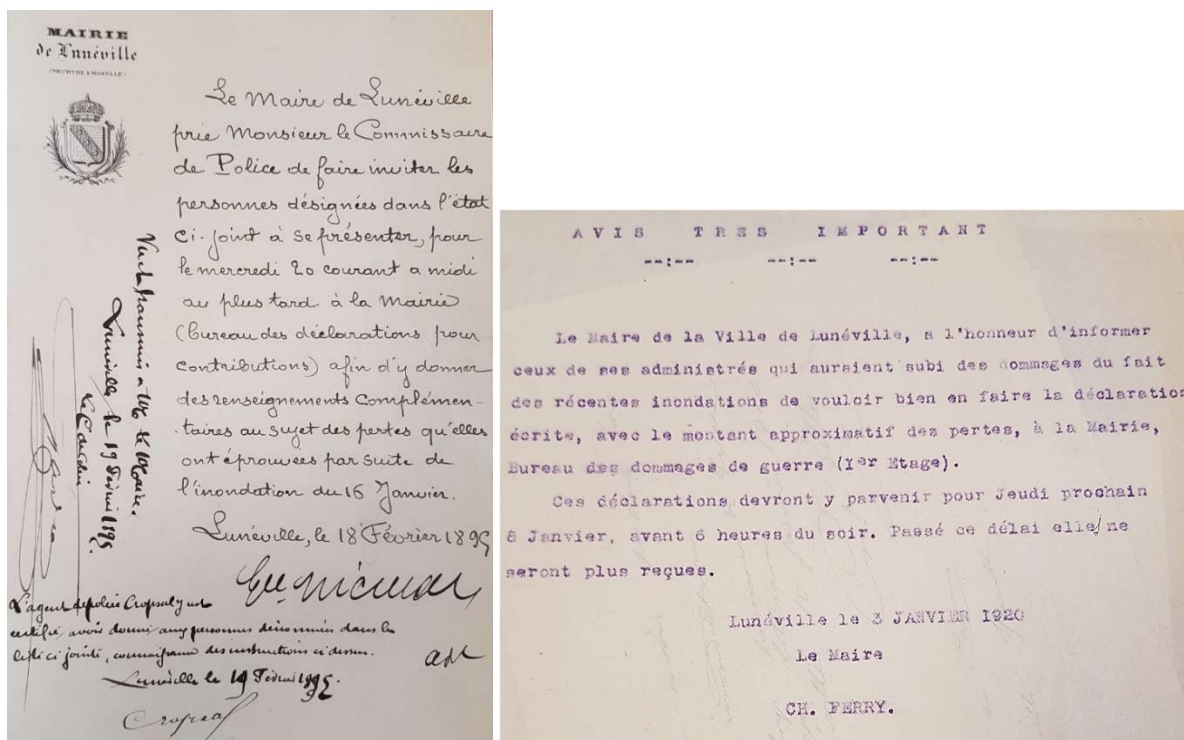 MAIRIE
de Lunéville
(MEURTHE & MOSELLE)
Le Maire de Lunéville
prie Monsieur le Commissaire
de Police de faire inviter les
personnes désignées dans l'état
ci-joint à se présenter, pour
le mercredi 20 courant a midi
au plus tard à la Mairie
(bureau des déclarations pour
contributions) afin d'y donner
des renseignements complémen-
-taires au sujet des pertes qu'elles
ont éprouvées par suite de
l'inondation du 16 Janvier.
Lunéville, le 18 Février 1895
Vu & transmis à Mr le Maire.
Lunéville le 19 Février 1895
L'agent de police Cropsal
certifie, avoir donné aux personnes dénommées dans la
liste ci jointe, connaissance des instructions ci dessus.
Lunéville le 19 Février 1895
Cropsal
AVIS TRES IMPORTANT
--:-- --:-- --:--
Le Maire de la Ville de Lunéville, a l'honneur d'informer
ceux de ses administrés qui auraient subi des dommages du fait
des récentes inondations de vouloir bien en faire la déclaration
écrite, avec le montant approximatif des pertes, à la Mairie,
Bureau des dommages de guerre (Ier Etage).
Ces déclarations devront y parvenir pour Jeudi prochain
8 Janvier, avant 6 heures du soir. Passé ce délai elle/ne
seront plus reçues.
Lunéville le 3 JANVIER 1920
Le Maire
CH. FERRY.